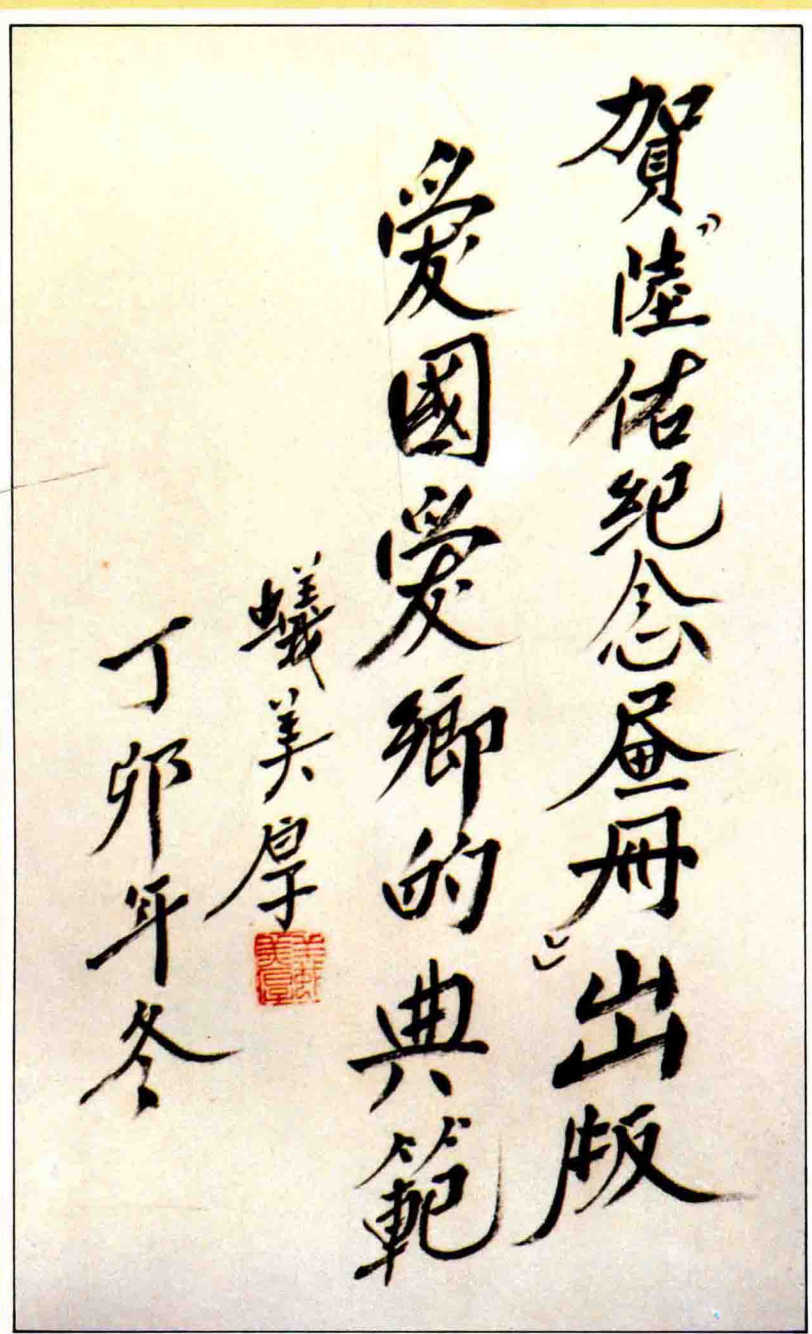 賀“陸佑紀念畫册”出版
愛國愛鄉的典範
蟻美厚
丁卯年冬